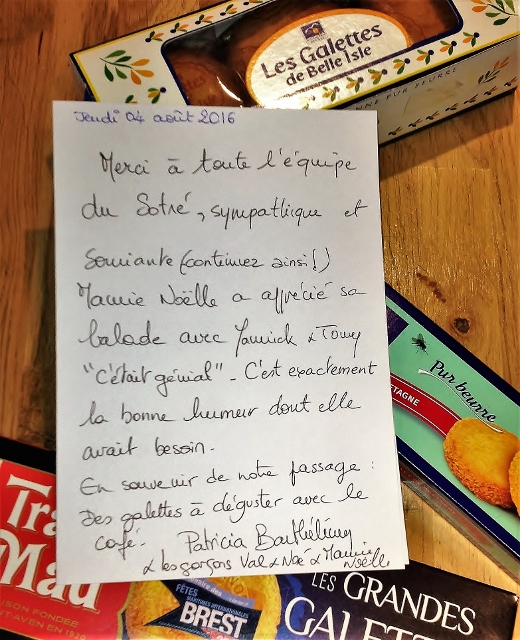 Les Galettes
de Belle Isle
PUR BEURRE
Jeudi 04 août 2016
Merci à toute l'équipe
du Sotré, sympathique et
Souriante (continuez ainsi!)
Mamie Noëlle a apprécié sa
balade avec Yannick & Tomy
"C'était génial" - C'est exactement
la bonne humeur dont elle
avait besoin.
En souvenir de notre passage :
Des galettes à déguster avec le
café. Patricia Barthélémy
& les garçons Val & Noé & Mamie
Noëlle
Pur beurre
TAGNE
Tra
Mad
ISON FONDÉE
T-AVEN EN 1920
FÊTES
MARITIMES INTERNATIONALES
BREST
LES GRANDES
GALET